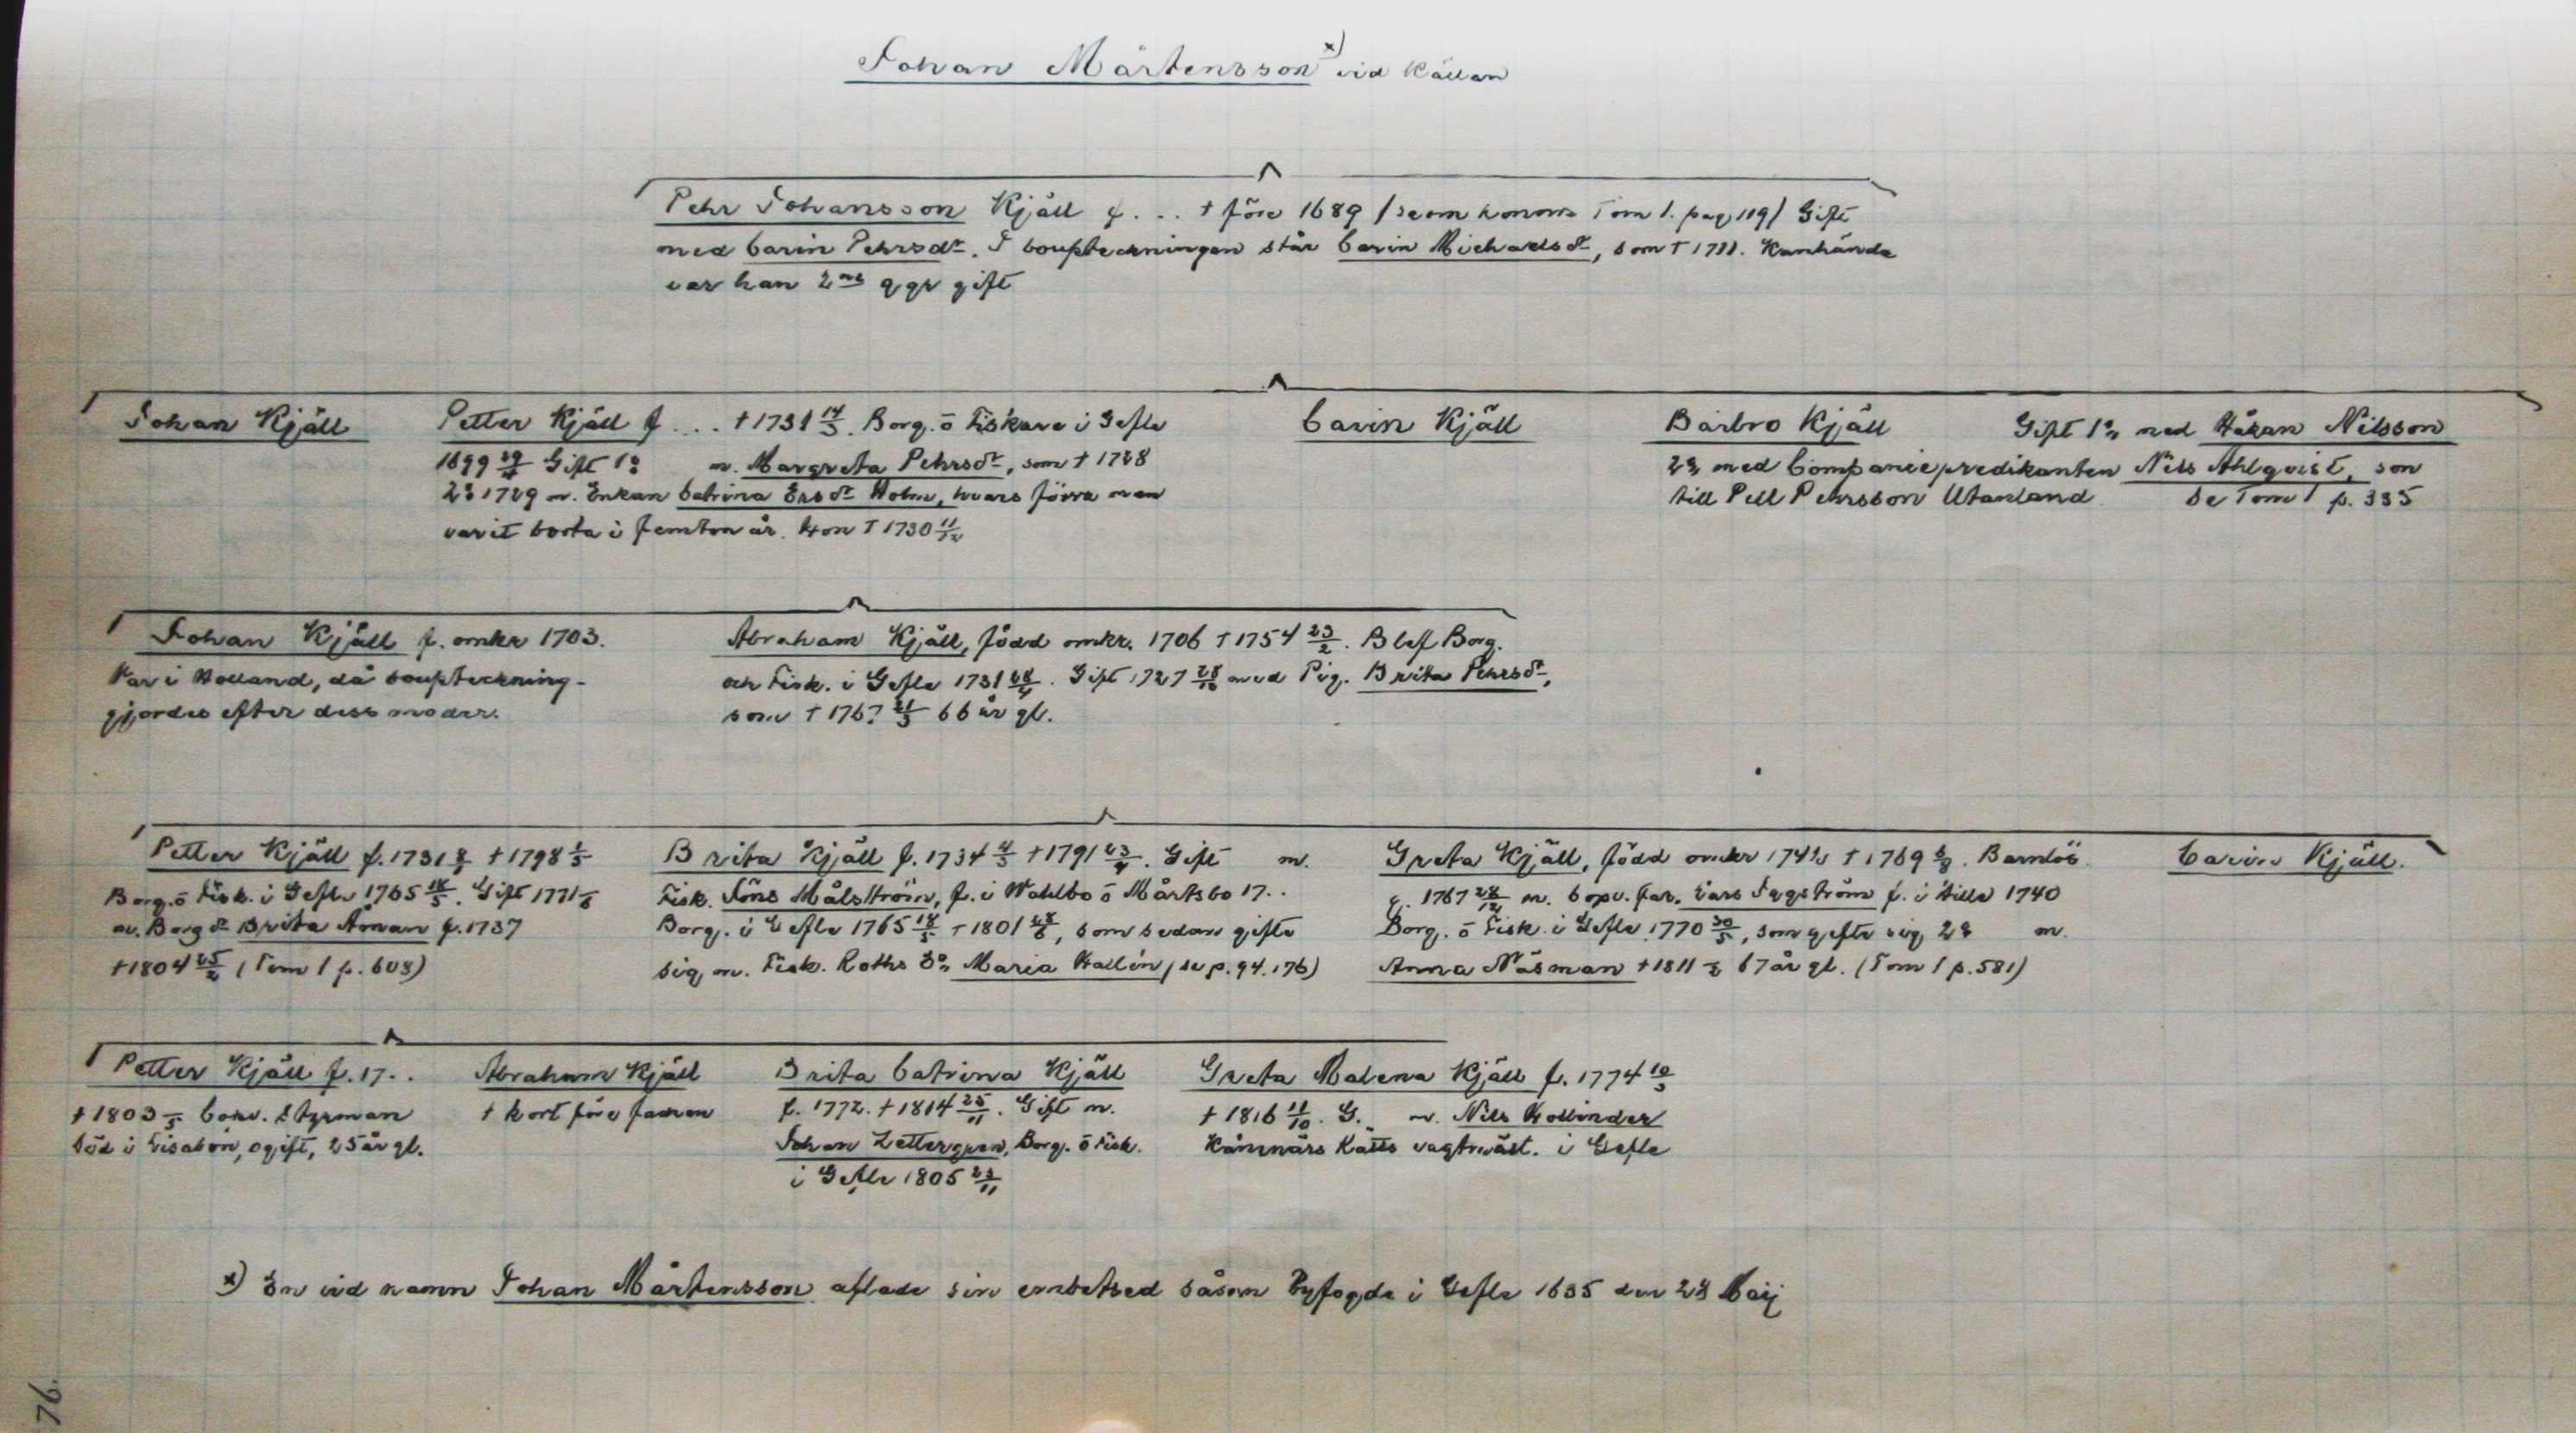 Johan Mårtensson x) vid Källan
Pehr Johansson Kjäll f. .. † före 1689 / se om honom Tom 1. pag 119/ Gift
med Carin Pehrsdr. I bouppteckningen står Carin Michaelsdr, som † 1711. Kanhända
var han 2ne ggr gift
Johan Kjäll
Petter Kjäll f. ... † 1731 14/3. Borg. ō Fiskare i Gefle
1699 Gift 1o m. Margreta Pehrsdr, som † 1728
2o 1729 m. Enkan Catrina Ersdr Holm, hvars förra man
varit borta i femton år. Hon † 1730 11/12
Carin Kjäll
Barbro Kjäll Gift 1o med Håkan Nilsson
2o med Compagniepredikanten Nils Ahlqvist, son
till Pell Pehrsson Utanland. Se Tom 1 p. 335
Johan Kjäll f. omkr 1703.
Var i Holland, då bouppteckning-
gjordes efter dess moder.
Abraham Kjäll, född omkr. 1706 † 1754 23/2. Blef Borg.
och Fisk. i Gefle 1731. Gift 1727 28/10 med Pig. Brita Pehrsdr,
som † 176? 21/3 66 år gl.
Petter Kjäll f. 1731 † 1798
Borg. ō Fisk. i Gefle 1765 18/5. Gift 1771
m. Borg dr Brita Åman f. 1737
† 1804 25/2 (Tom 1 p. 608)
Brita Kjäll f. 1734 4/3 † 1791 23/4. Gift m.
Fisk. Jöns Målström, f. i Wahlbo ō Mårtsbo 17..
Borg. i Gefle 1765 18/5 † 1801, som sedan gifte
sig m. Fisk. Roths Dr Maria Wallin / se p. 94. 176)
Greta Kjäll, född omkr † 1769. Barnlös.
g. 1767 28/12 m. Copv. far. Lars Fagström f. i Hille 1740
Borg. ō Fisk. i Gefle 1770 30/5, som gifte sig 2o m.
Anna Näsman † 1811 67 år gl. (Tom 1 p. 581)
Carin Kjäll.
Petter Kjäll f. 17..
† 1803 Copv. Styrman
död i Lisabon, ogift, 25 år gl.
Abraham Kjäll
† kort före fadren
Brita Catrina Kjäll
f. 1772. † 1814 25/11. Gift m.
Johan Zettergren, Borg. ō Fisk.
i Gefle 1805 23/11
Greta Malena Kjäll f. 1774 10/3
† 1816 11/10. G. m. Nils Hollinder
Kämnärs Rätts vagtmäst. i Gefle
x) En vid namn Johan Mårtensson aflade sin embetsed såsom Byfogde i Gefle 1635 den 28 Maij
76.